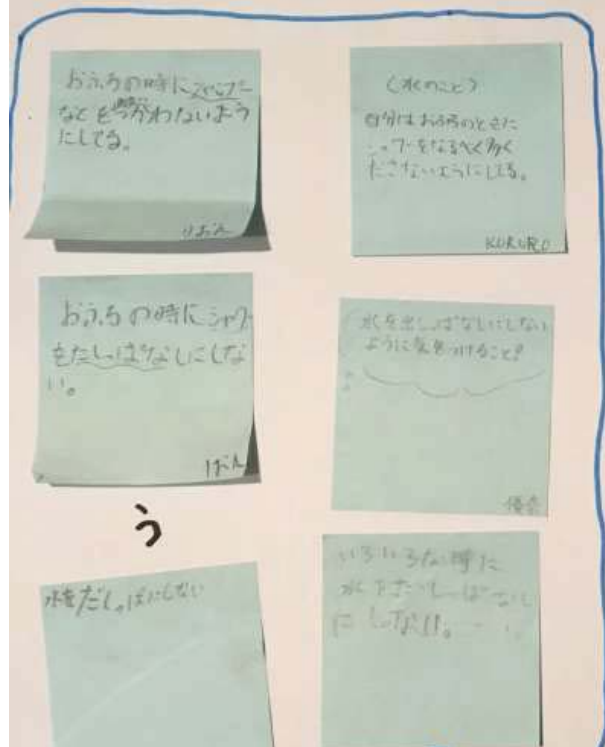 おふろの時にシャワー
などをつかわないよう
にしてる。
りおん
(水のこと)
自分はおふろのときに
シャワーをなるべく多く
ださないようにしてる。
KURURO
おふろの時にシャワー
をだしっぱなしにしな
い。
りおん
水を出しっぱなしにしない
ように気をつけること!
う
水をだしっぱにしない
いろいろな時に
水をだしっぱなし
にしない。